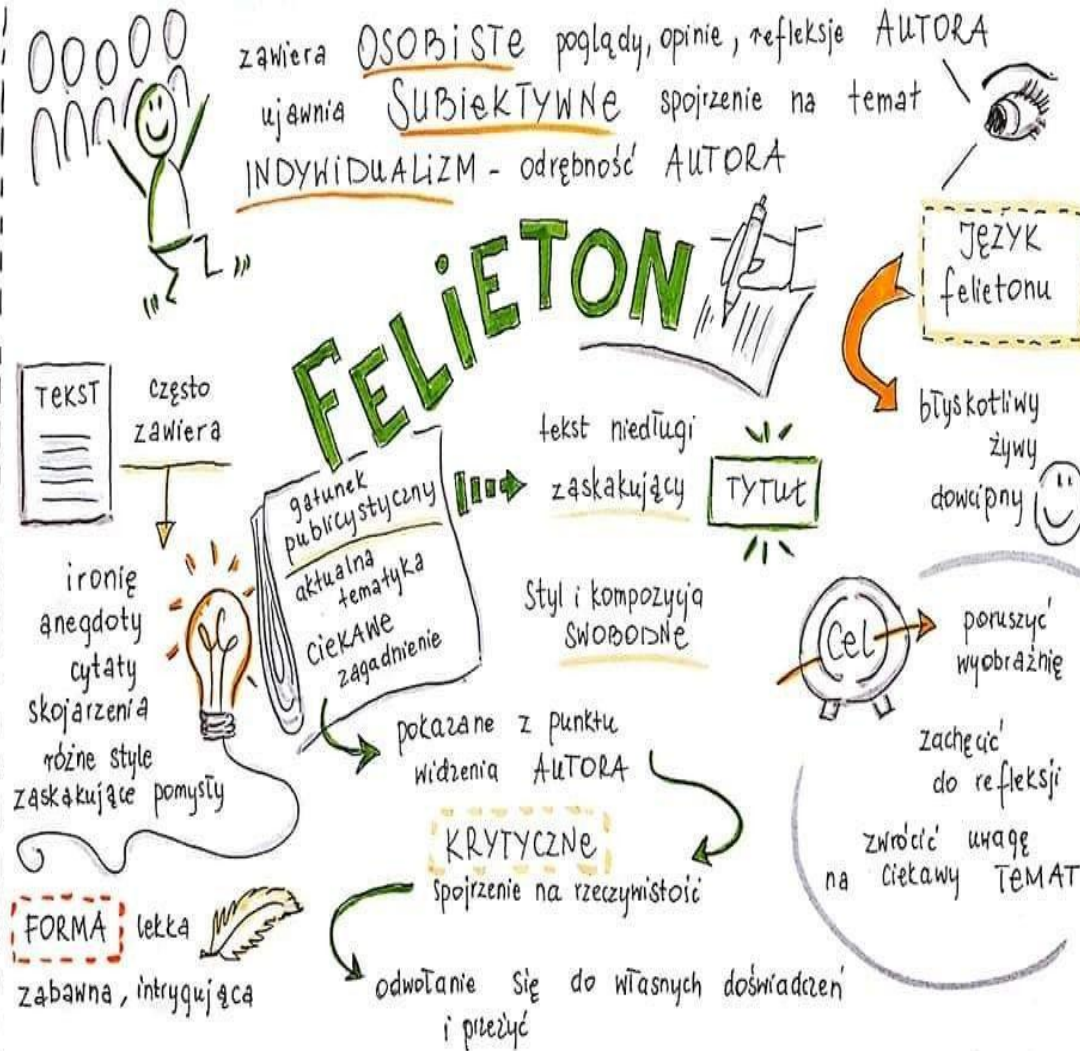 zawiera OSOBISTE poglądy, opinie, refleksje AUTORA
ujawnia SUBIEKTYWNE spojrzenie na temat
INDYWIDUALIZM - odrębność AUTORA
FELIETON
JĘZYK
felietonu
błyskotliwy
żywy
dowcipny
TEKST
często
zawiera
ironię
anegdoty
cytaty
skojarzenia
różne style
zaskakujące pomysły
gatunek
publicystyczny
aktualna
tematyka
CIEKAWE
zagadnienie
tekst niedługi
zaskakujący
TYTUŁ
Styl i kompozycja
SWOBODNE
Cel
poruszyć
wyobraźnię
zachęcić
do refleksji
zwrócić uwagę
na ciekawy TEMAT
pokazane z punktu
widzenia AUTORA
KRYTYCZNE
spojrzenie na rzeczywistość
odwołanie się do własnych doświadczeń
i przeżyć
FORMA lekka
zabawna, intrygująca